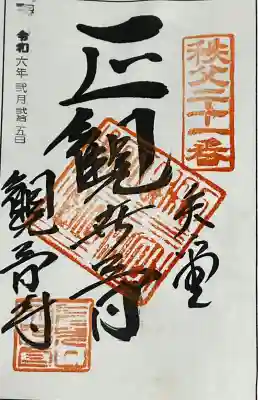 秩父二十一番
矢堂
正觀世音
觀音寺
令和六年弐月弐拾五日